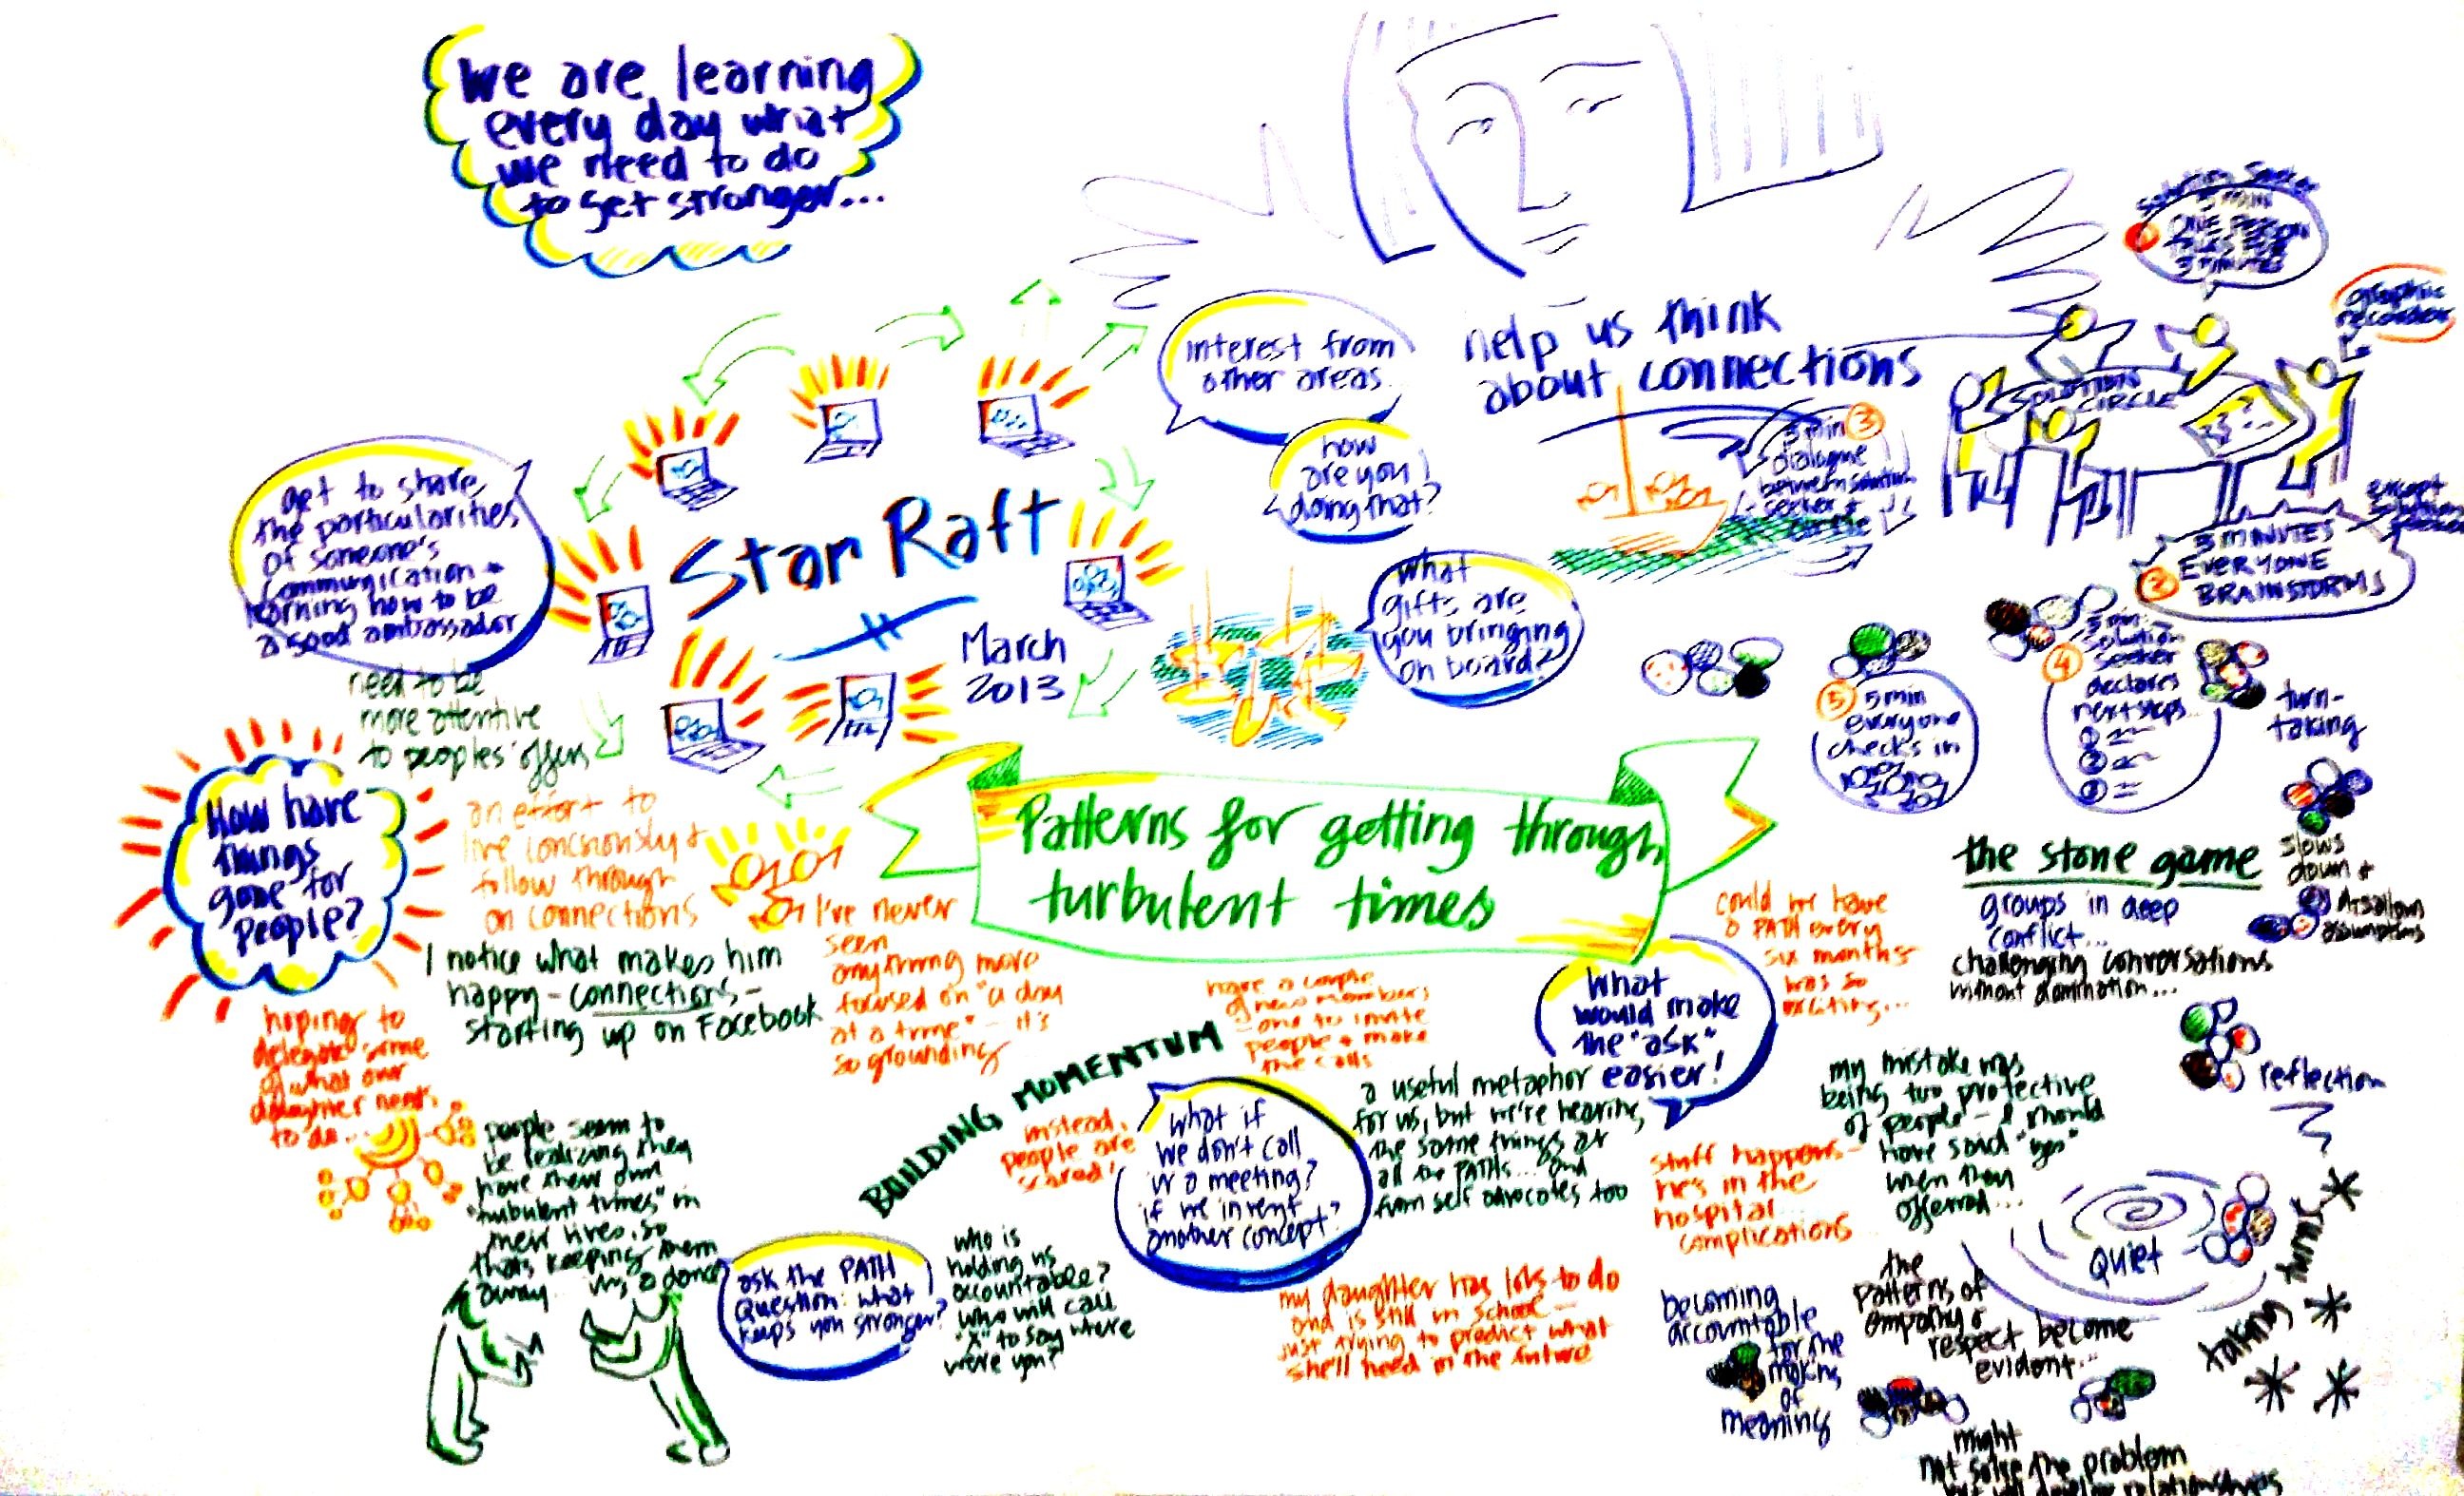 We are learning
every day what
we need to do
to get stronger...
get to share
the particularities
of someone's
communication +
learning how to be
a good ambassador
Star Raft
March
2013
interest from
other areas
how
are you
doing that?
what
gifts are
you bringing
on board?
help us think
about connections
3 min
ONE PERSON
TALKS FOR
3 MINUTES
graphic
recorder
SOLUTION
CIRCLE
2
3 MINUTES
EVERYONE
BRAINSTORMS
3
3 min
dialogue
between solution
seeker +
4
3 min
solution
seeker
declares
next steps
1
2
3
5
5 min
everyone
checks in
turn-
taking
need to be
more attentive
to peoples' offers
How have
things
gone for
people?
an effort to
live consciously +
follow through
on connections
I notice what makes him
happy - connections -
starting up on Facebook
I've never
seen
anything more
focused on "a day
at a time" - it's
so grounding
hoping to
delegate some
of what our
daughter needs
to do...
people seem to
be realizing they
have their own
"turbulent times" in
their lives, so
thats keeping them
away... its a dance
Patterns for getting through
turbulent times
BUILDING MOMENTUM
have a couple
of new members
- one to invite
people + make
the calls
instead,
people are
scared!
What if
we don't call
it a meeting?
if we invent
another concept?
ask the PATH
Question: what
keeps you stronger?
who is
holding us
accountable?
who will call
"X" to say where
were you?
What
would make
the "ask"
easier!
a useful metaphor
for us, but we're hearing
the same things at
all the PATHs... and
from self advocates too
could we have
a PATH every
six months
was so
exciting...
my mistake was
being too protective
of people - I should
have said "yes"
when they
offered...
stuff happens -
he's in the
hospital...
complications
my daughter has lots to do
and is still in school -
just trying to predict what
she'll need in the future
the stone game
groups in deep
conflict...
challenging conversations
without domination...
slows
down +
disallows
assumptions
reflection
Quiet
turn
taking
the
patterns of
empathy &
respect become
evident..
becoming
accountable
for the
making
of
meanings
might
not solve the problem
but will develop relationships